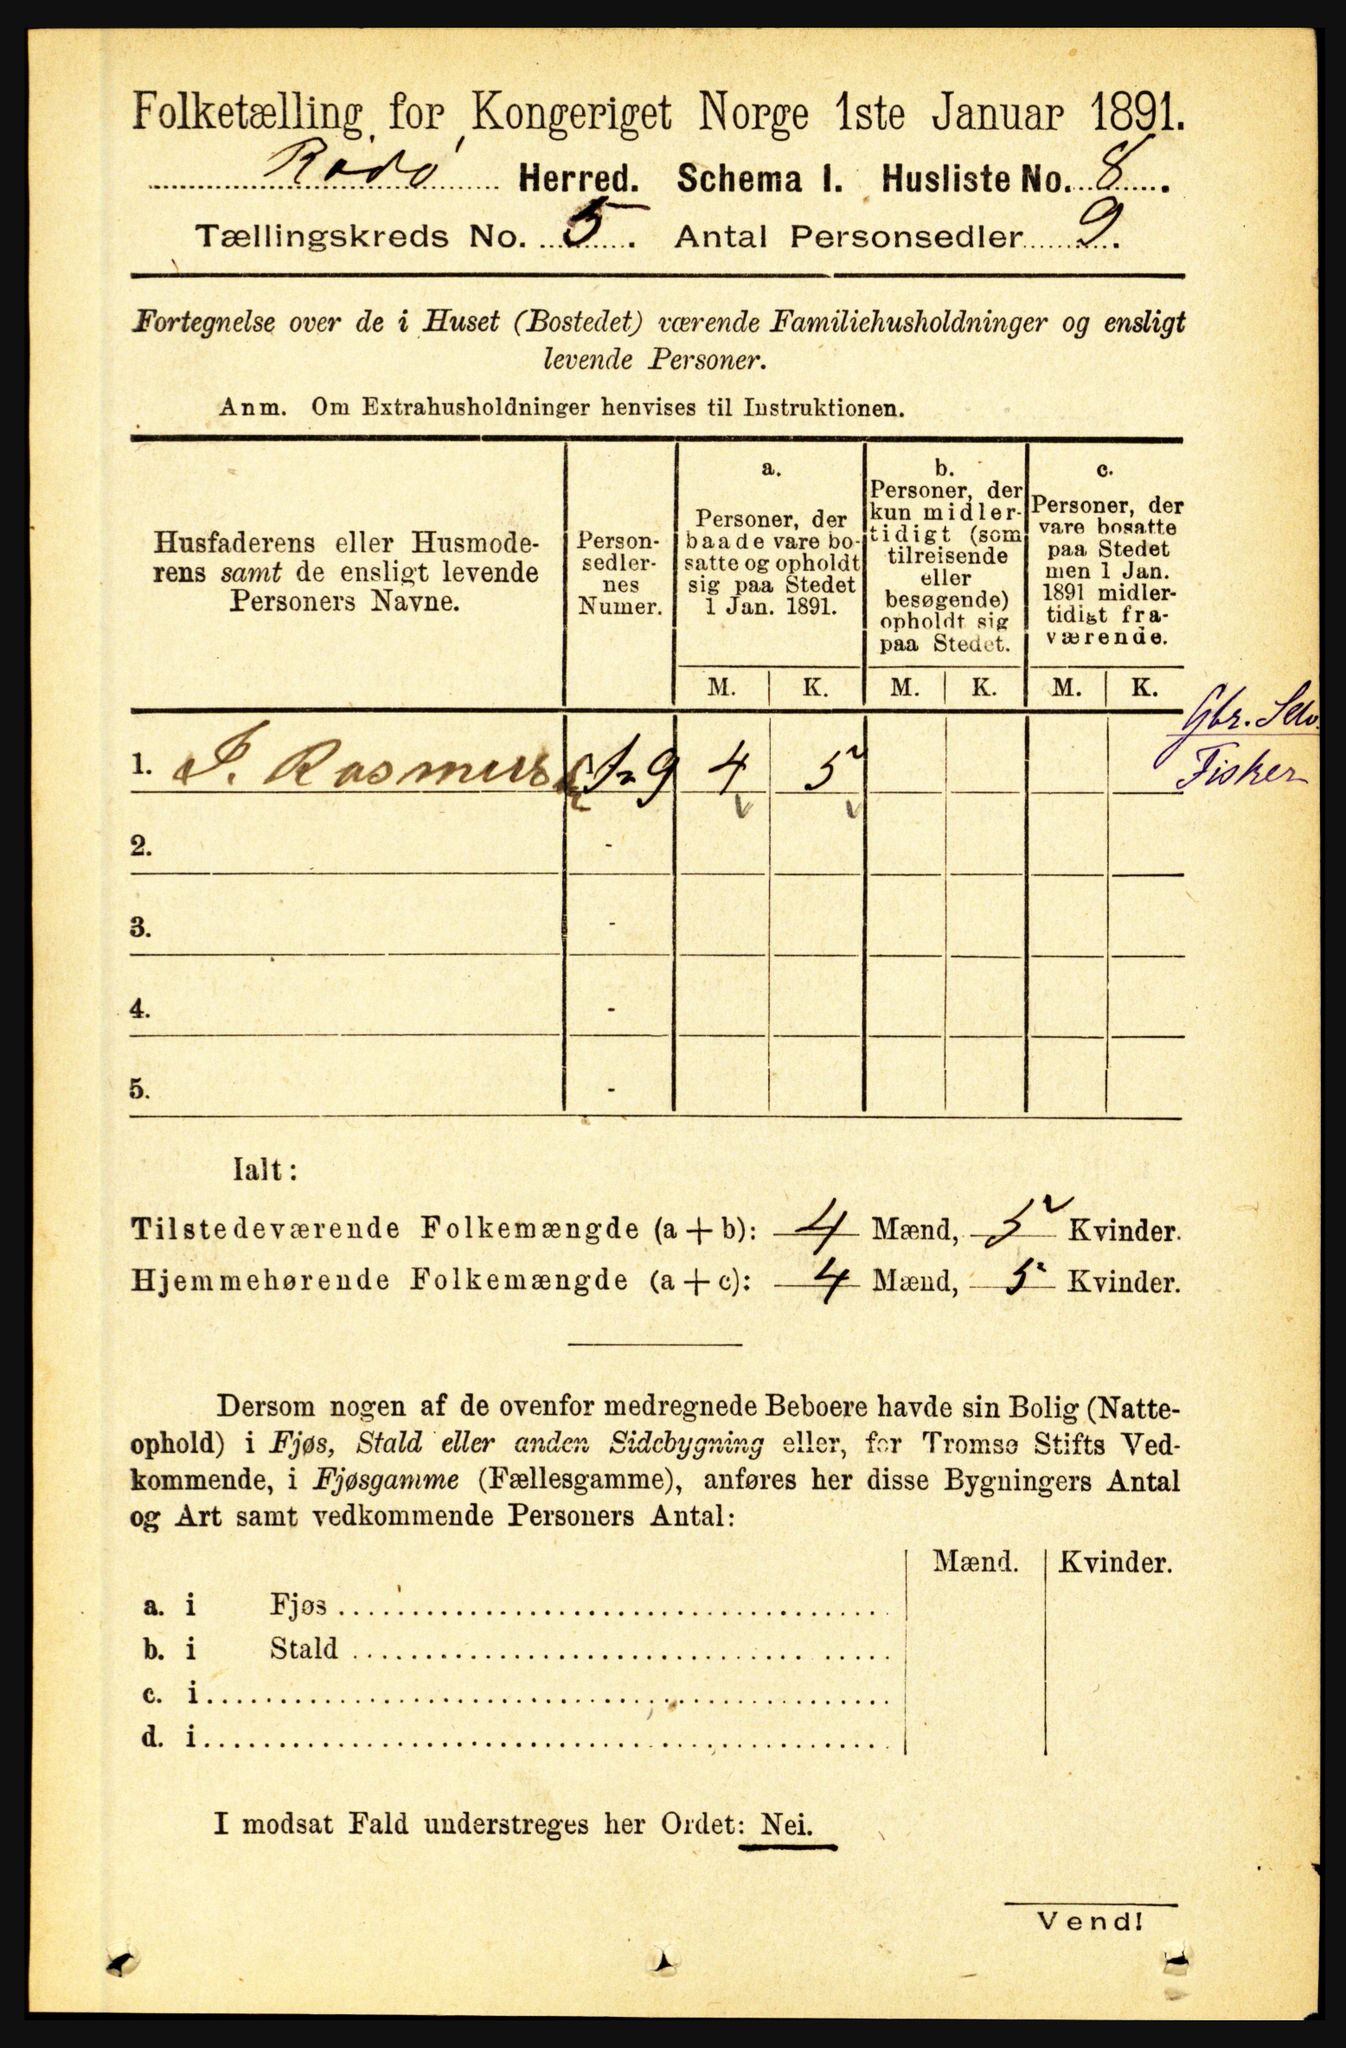 Folketælling for Kongeriget Norge 1ste Januar 1891.
Rødø Herred. Schema I. Husliste No. 8.
Tællingskreds No. 5. Antal Personsedler 9.
Fortegnelse over de i Huset (Bostedet) værende Familiehusholdninger og ensligt
levende Personer.
Anm. Om Extrahusholdninger henvises til Instruktionen.
Husfaderens eller Husmode-
rens samt de ensligt levende
Personers Navne.
Person-
sedler-
nes
Numer.
a.
Personer, der
baade vare bo-
satte og opholdt
sig paa Stedet
1 Jan. 1891.
b.
Personer, der
kun midler-
tidigt (som
tilreisende
eller
besøgende)
opholdt sig
paa Stedet.
c.
Personer, der
vare bosatte
paa Stedet
men 1 Jan.
1891 midler-
tidigt fra-
værende.
M. K. M. K. M. K.
Gbr. Selv.
1. J. Rasmus 1-9 4 5 Fisker
2. -
3. -
4. -
5. -
Ialt:
Tilstedeværende Folkemængde (a + b): 4 Mænd, 5 Kvinder.
Hjemmehørende Folkemængde (a + c): 4 Mænd, 5 Kvinder.
Dersom nogen af de ovenfor medregnede Beboere havde sin Bolig (Natte-
ophold) i Fjøs, Stald eller anden Sidebygning eller, for Tromsø Stifts Ved-
kommende, i Fjøsgamme (Fællesgamme), anføres her disse Bygningers Antal
og Art samt vedkommende Personers Antal:
Mænd. Kvinder.
a. i Fjøs
b. i Stald
c. i
d. i
I modsat Fald understreges her Ordet: Nei.
Vend!